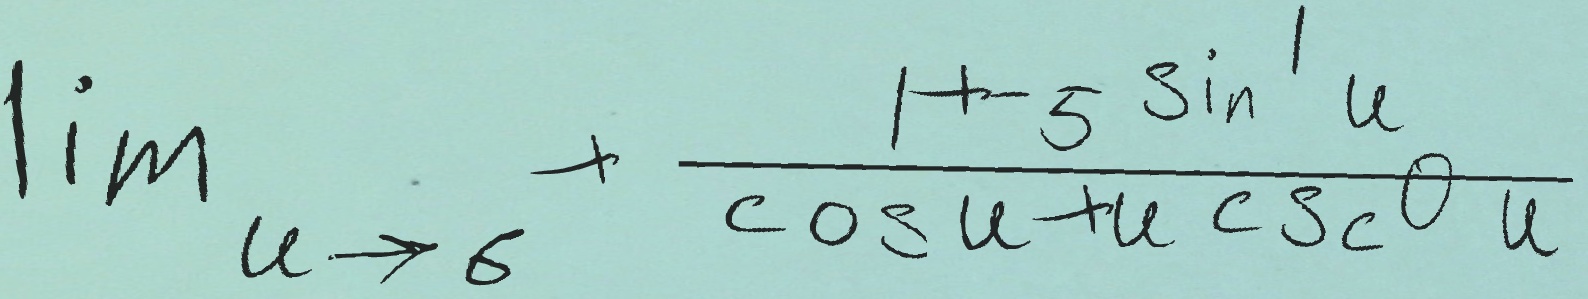 \lim_{u \to 6^{+}} \frac{1 + -5 \sin^{1} u}{\cos u + u \csc^{0} u}